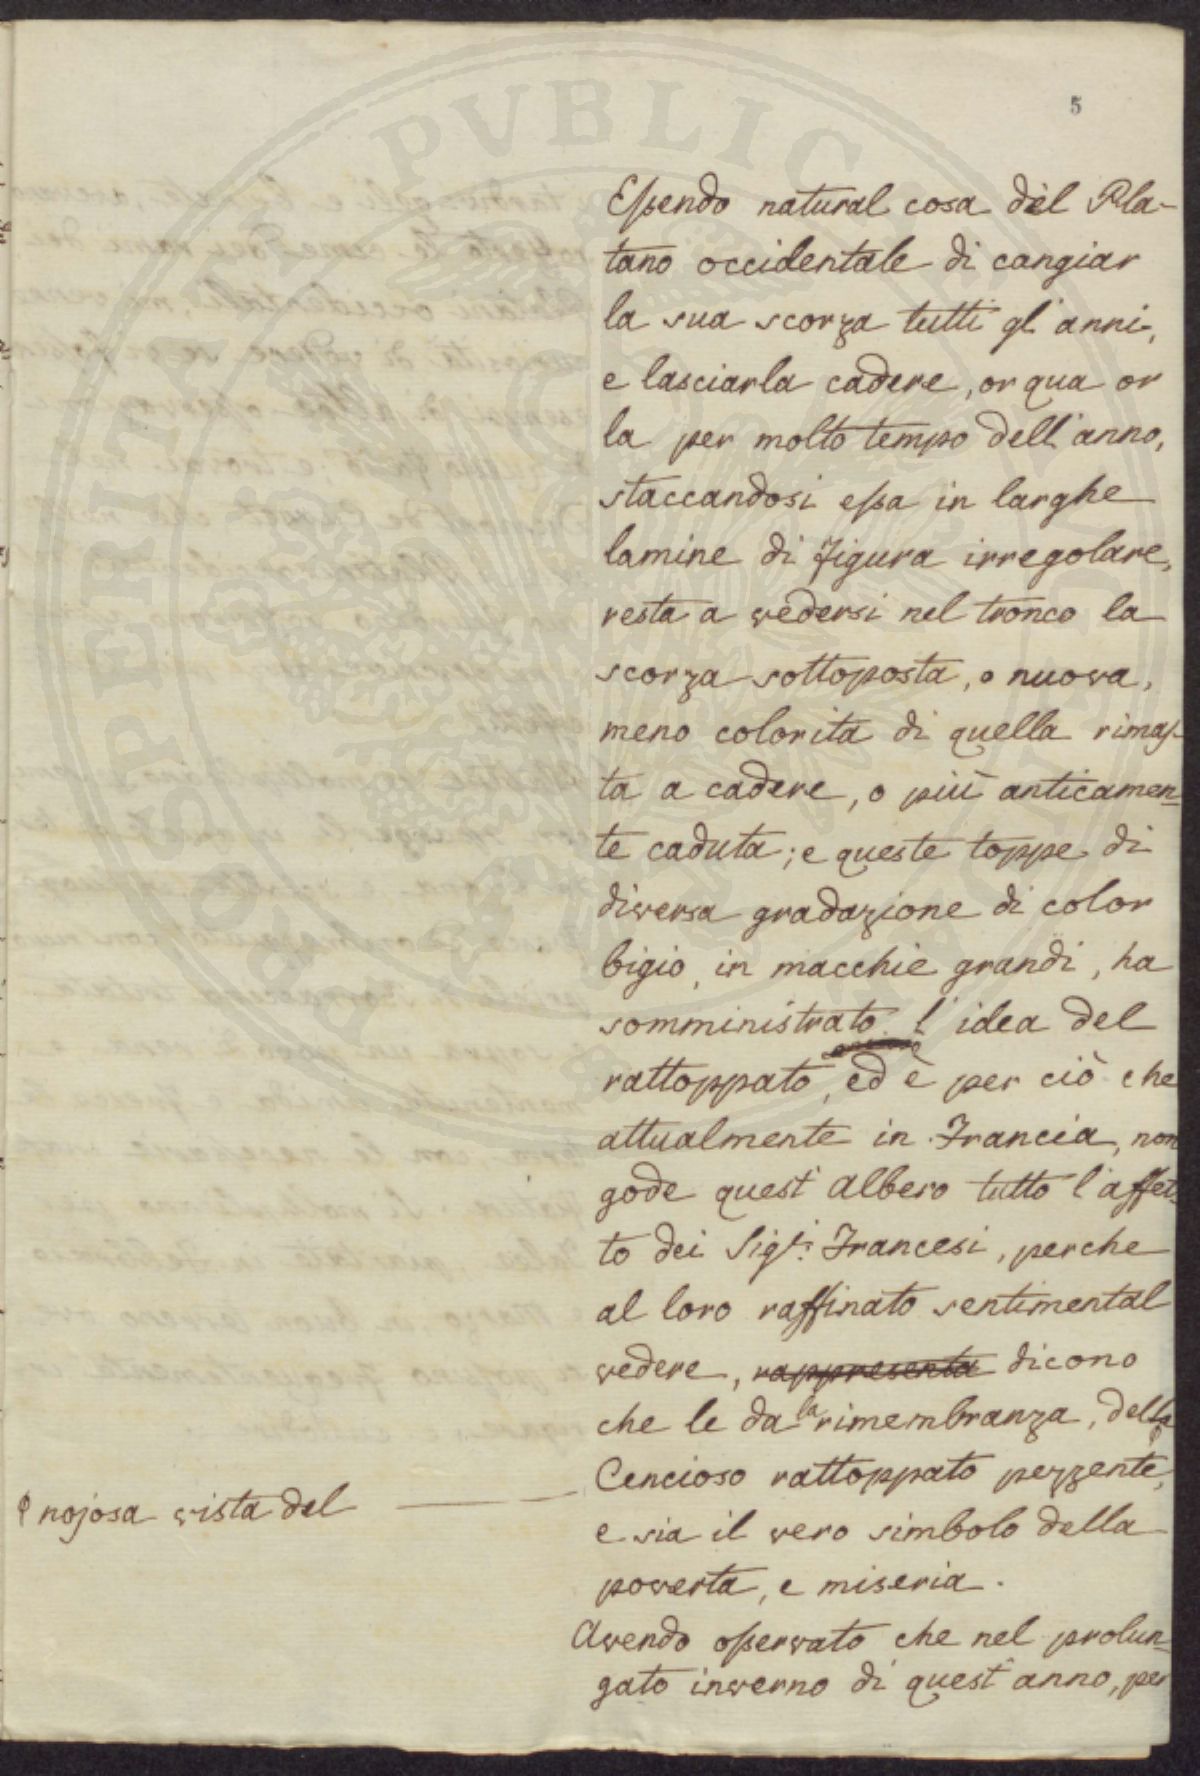 5
Essendo natural cosa del Pla-
tano occidentale di cangiar
la sua scorza tutti gl'anni,
e lasciarla cadere, or qua or
la per molto tempo dell'anno,
staccandosi essa in larghe
lamine di figura irregolare,
resta a vedersi nel tronco la
scorza sottoposta, o nuova,
meno colorita di quella rimas-
ta a cadere, o più anticamen-
te caduta; e queste toppe di
diversa gradazione di color
bigio, in macchie grandi, ha
somministrato l'idea del
rattoppato, ed è per ciò che
attualmente in Francia, non
gode quest'albero tutto l'affet-
to dei Sigri. Francesi, perche
al loro raffinato sentimental
vedere, rappresenta dicono
che le da la rimembranza, della
Cencioso rattoppato pezzente,
nojosa vista del
e sia il vero simbolo della
poverta, e miseria.
Avendo osservato che nel prolun-
gato inverno di quest'anno, per
PVBLIC
PROSPERITATE